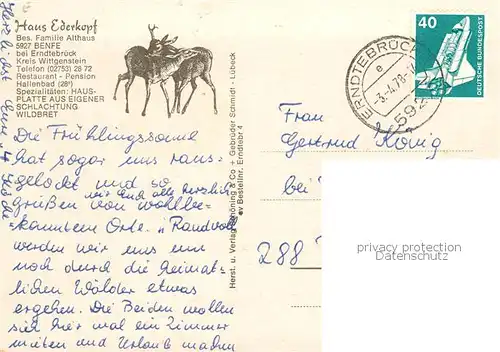 Haus Ederkopf
Bes. Familie Althaus
5927 BENFE
bei Erndtebrück
Kreis Wittgenstein
Telefon (02753) 2872
Restaurant - Pension
Hallenbad (28°)
Spezialitäten: HAUS-
PLATTE AUS EIGENER
SCHLACHTUNG
WILDBRET
Die Frühlingssonne
hat sogar uns raus-
gelockt und so
wir und alle herzlich
grüßen von wohlbe-
kanntem Orte.
werden wir uns nun
noch durch die heimat-
lichen Wälder etwas
ergehen. Die Beiden wollen
sich hier mal ein Zimmer
mieten und Urlaub machen
Herzliebst Eure
Herst. u. Verlag Schöning & Co + Gebrüder Schmidt - Lübeck
Bestellnr. Erndtebr 4
ERNDTEBRÜCK
e
-3.-4.78
592
40
DEUTSCHE BUNDESPOST
Frau
Gertrud König
bei
288
privacy protection
(Datenschutz)